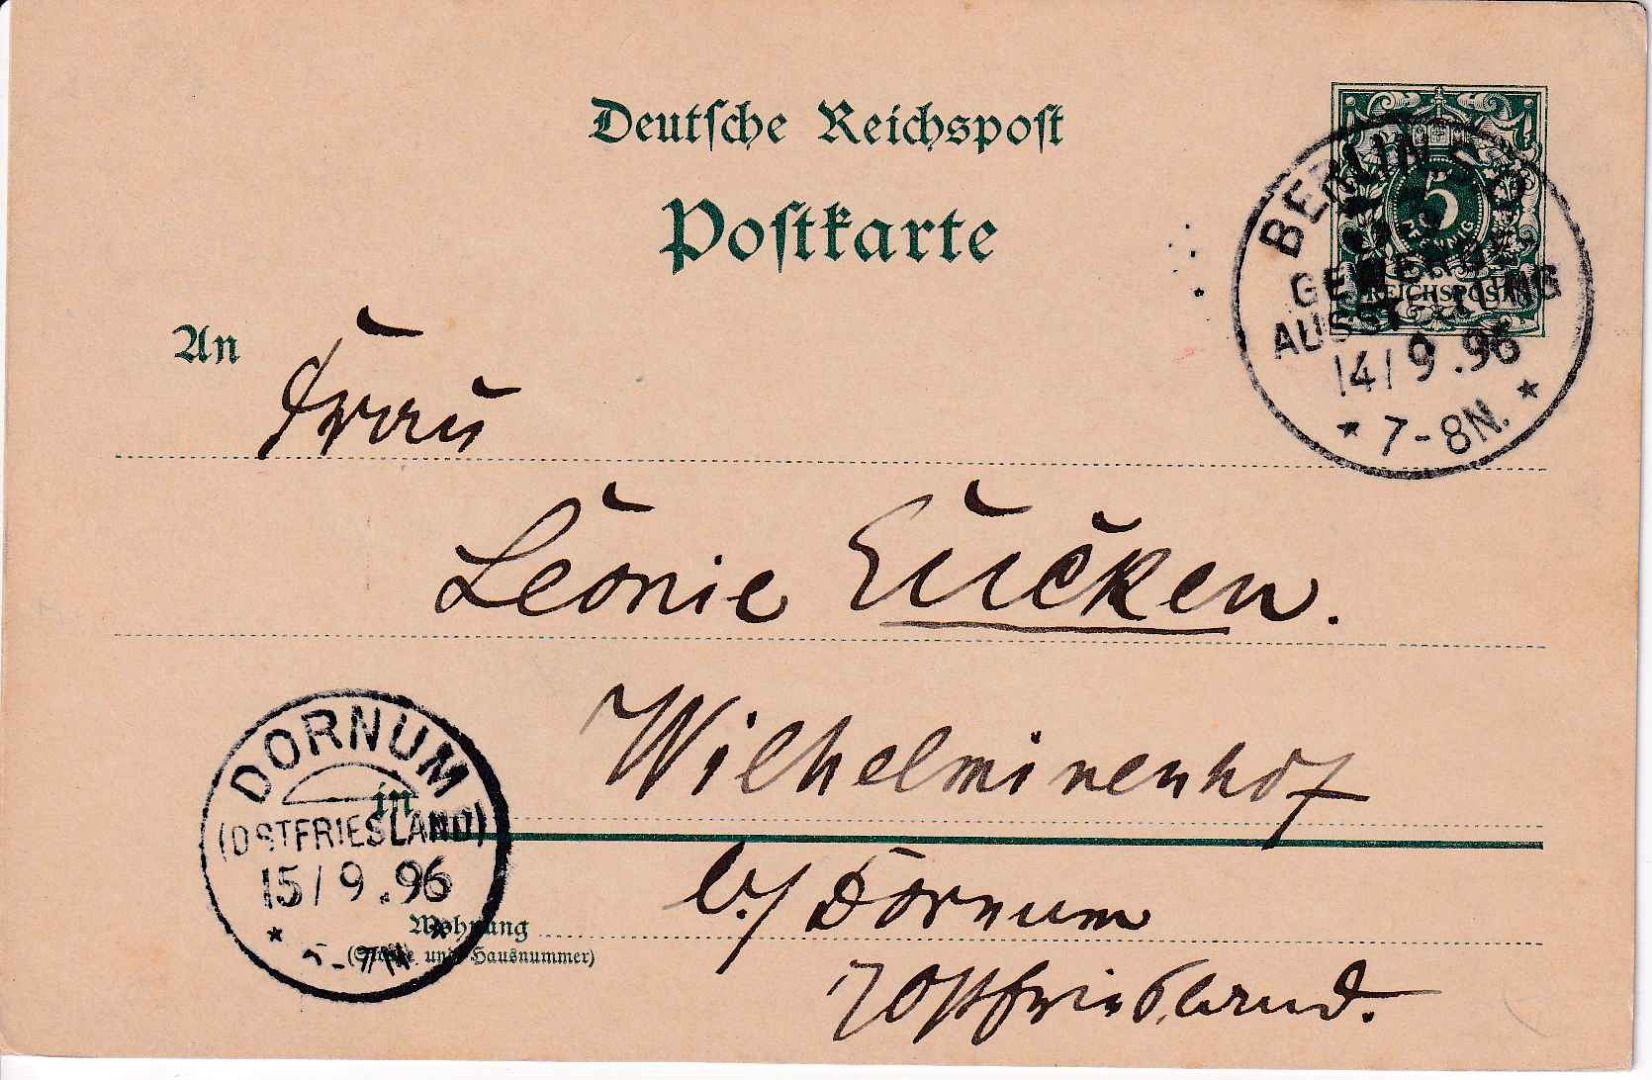 Deutsche Reichspost
Postkarte
5
PFENNIG
REICHSPOST
BERLIN S.O.
GEWERBE-
AUSSTELLUNG
14/9.96
* 7-8N. *
An
Frau
Léonie Eucken.
Wilhelminenhof
in
b./ Dornum
Ostfriesland.
Wohnung
(Straße und Hausnummer)
DORNUM
(OSTFRIESLAND)
15/9.96